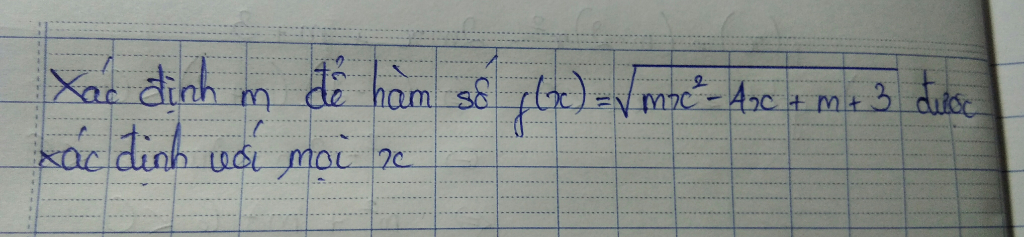 Xác định m để hàm số f(x) = √(mx² - 4x + m + 3) được
xác định với mọi x